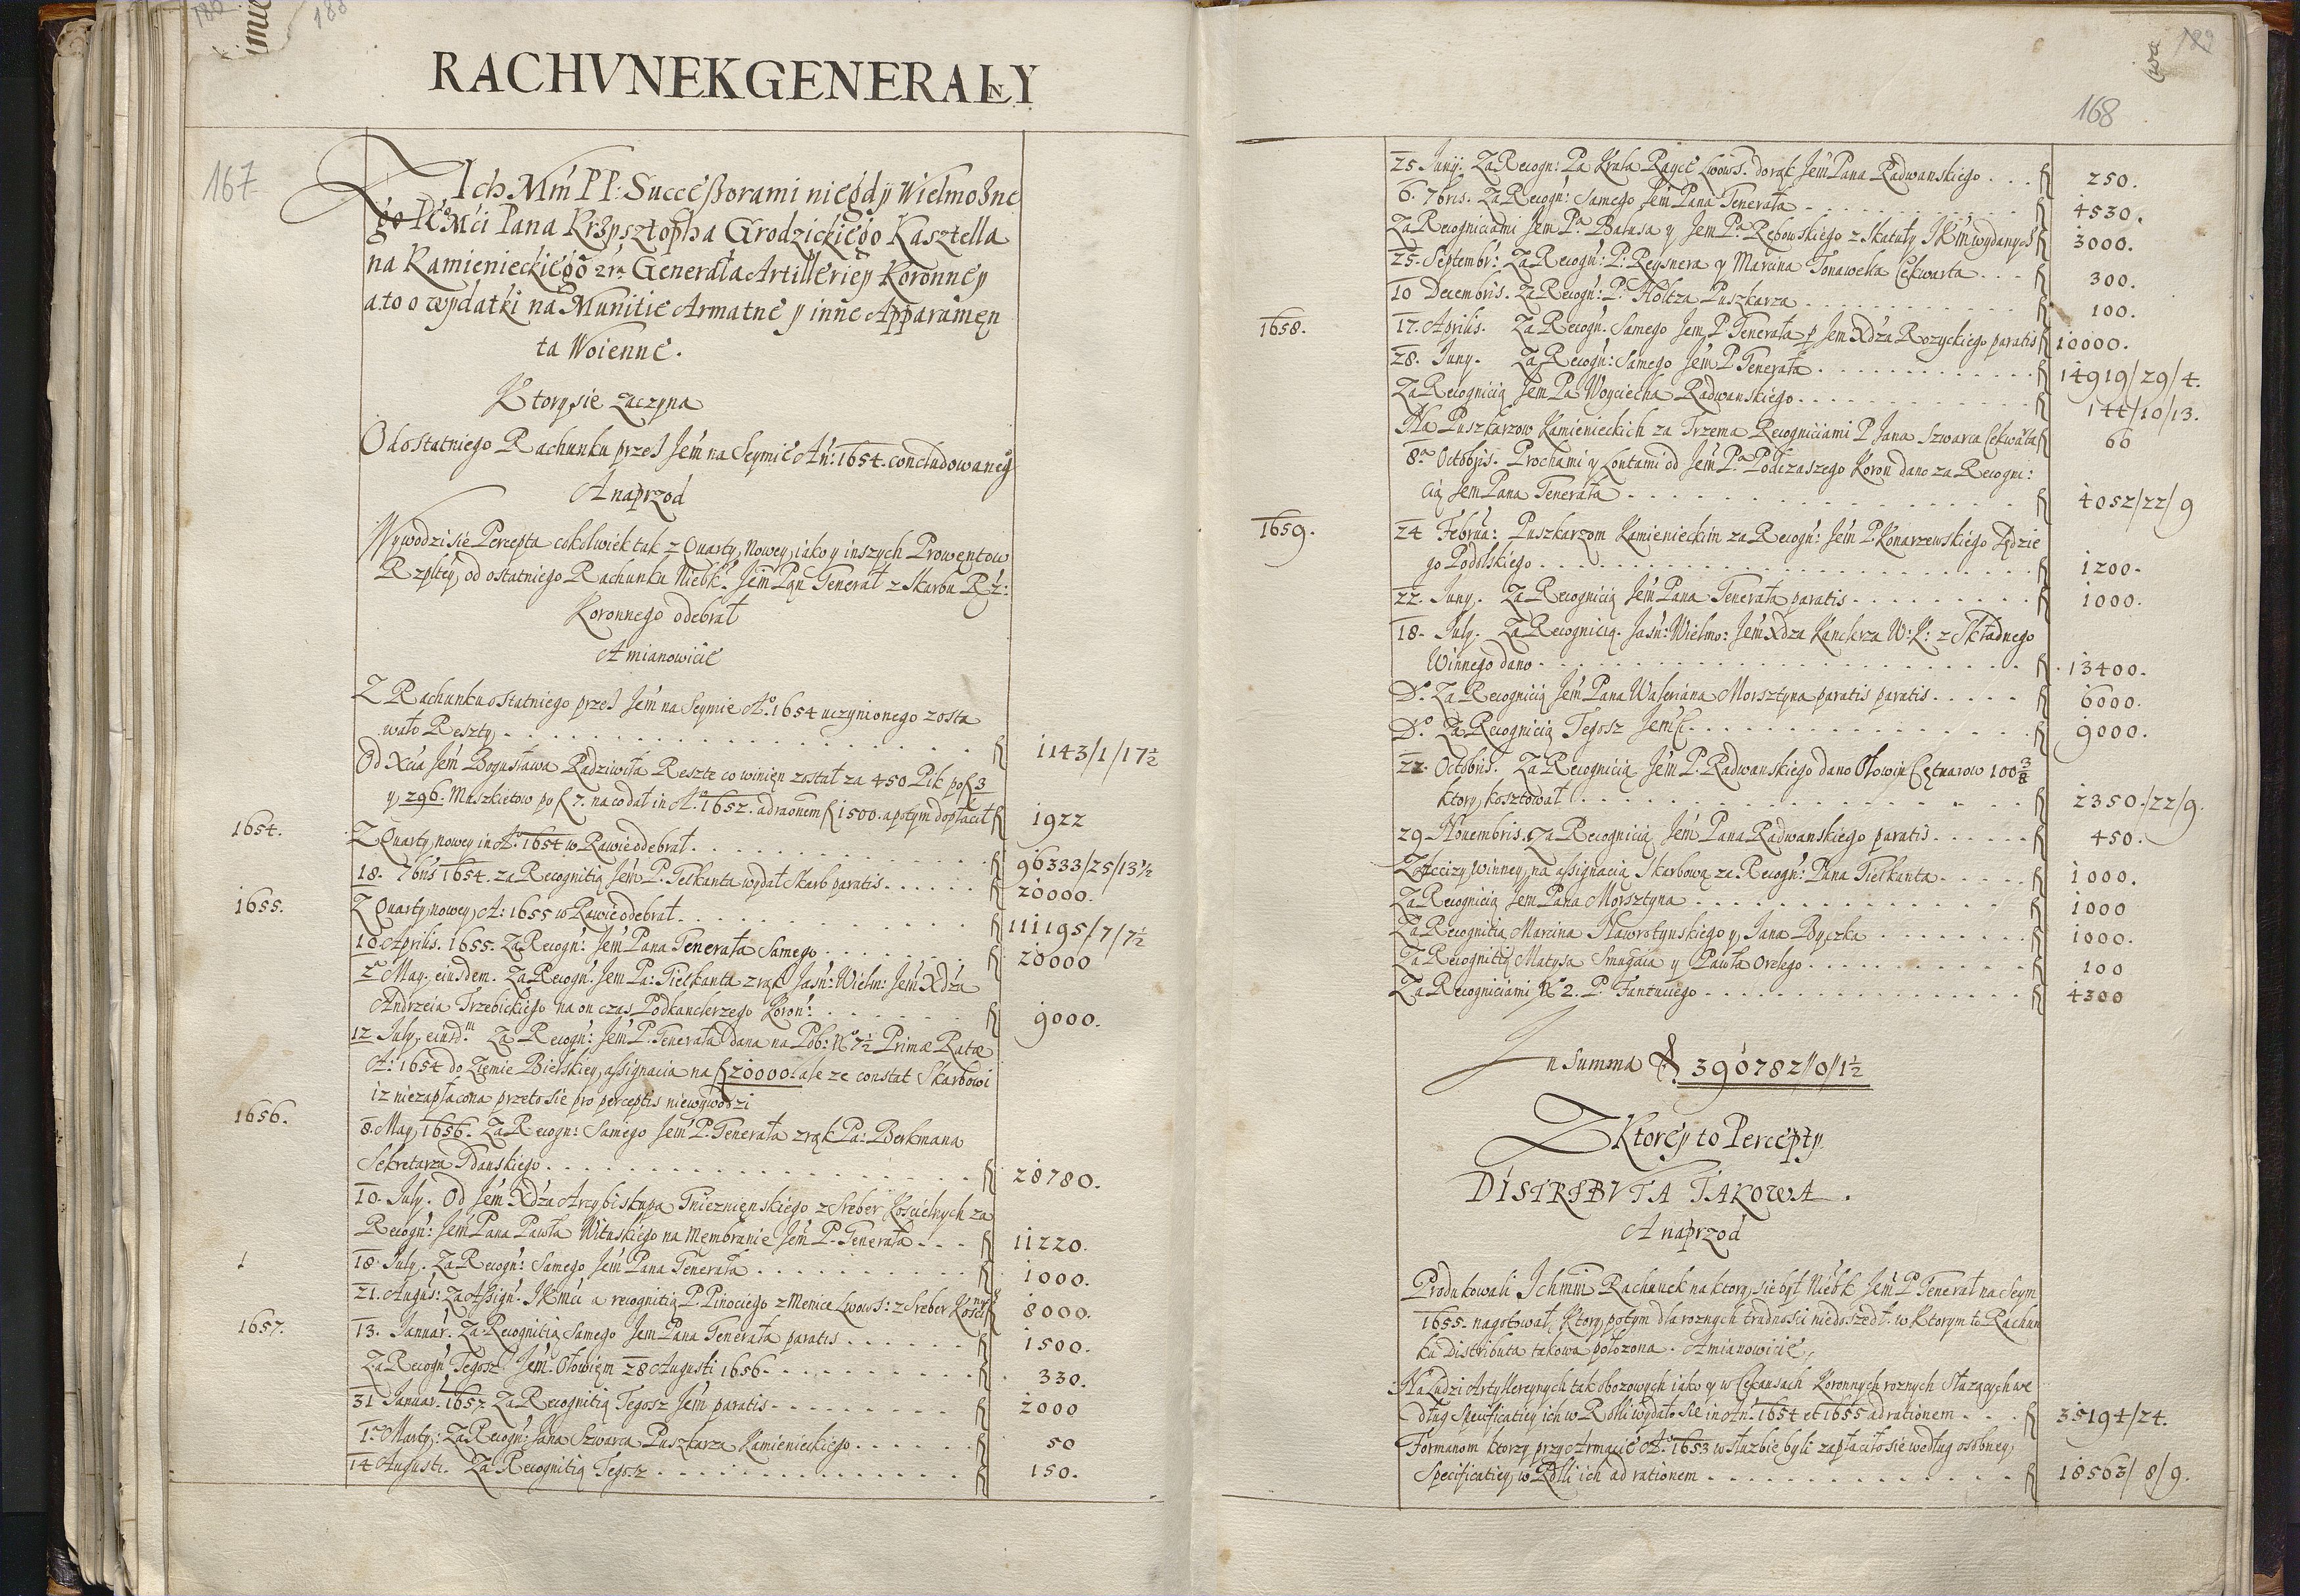 188
168
RACHVNEK GENERALNY
167
Z Ich Mm PP: Successorami niegdy Wielmożne
go Ie Mci Pana Krzysztopha Grodzickiego Kasztella
na Kamienieckiego Generała Artilleriey Koronney
a to o wydatki na Munitie Armatne y inne Apparamen
ta Woienne.
Ktory sie zaczyna
Od ostatniego Rachunku przes Jem na Seymie An: 1654. concludowaneg
A naprzod
Wywodzi sie Percepta cokolwiek tak z Quarty Nowey, iako y inszych Prowentow
Rzpltey, od ostatniego Rachunku Niebk. Jem Pan Generał z Skarbu Rz:
Koronnego odebrał
A mianowicie
Z Rachunku ostatniego przes Jem na Seymie Ao. 1654 uczynionego zosta
wało Reszty f 1143/1/17½
Od Xcia Jem Bogusława Radziwiła Reszte co winien został za 450 Pik po f 3
y 296. Muszkietow po f 7. na co dał in Ao. 1652. ad raonem f 1500. a potym dopłacił f 1922
1654.
Z Quarty nowey in Ao. 1654 w Rawie odebrał f 96333/25/13½
18. 7bris 1654. za Recognitią Jem P. Gelkanta wydał Skarb paratis f 20000.
1655.
Z Quarty nowey A: 1655 w Rawie odebrał f 111195/7/7½
10 Aprilis. 1655. Za Recogn: Jem Pana Generała Samego f 20000
2a May. eiusdem. Za Recogn: Jem Pa: Gielkanta z rąk Jasn: Wielm: Jem Xdza
Andrzeia Trzebickiego na on czas Podkanclerzego Koron: f 9000.
12 July. eiusd.m Za Recogn: Jem P. Generała dana na Pob: No 7½ Primæ Ratæ
A: 1654 do Ziemie Bielskiey, assignacia na f 20000. ale ze constat Skarbowi
iz niezapłacona przeto sie pro perceptis niewywodzi
1656.
8. May, 1656. Za Recogn: Samego Jem P. Generała z rąk Pa: Berkmana
Sekretarza Gdanskiego f 28780.
10. July. Od Jem Xdza Arzybiskupa Gnieznienskiego z Sreber Koscielnych za
Recogn: Jem Pana Pawła Wituskiego na Membranie Jem P. Generała f 11220.
1
18. July. Za Recogn: Samego Jem Pana Generała f 1000.
21. Augus: Za Assign: JKMci a recognitią P. Pinociego z Menice Lwows: z Sreber Kosciel f 8000.
1657.
13. Januar. Za Recognitią Samego Jem Pana Generała paratis f 1500.
Za Recogn Tegosz Jem. Ołowiem 28 Augusti 1656 f 330.
31 Januar. 1657 Za Recognitią Tegosz Jem paratis f 2000
1a Marty: Za Recogn: Jana Szwarca Puszkarza Kamienieckiego f 50
14 Augusti. Za Recognitią Tegosz f 150.
25. Juny. Za Recogn: Pa Krala Rayce Lwows. do rąk Jem Pana Radwanskiego f 250.
6. 7bris. Za Recogn: Samego Jem Pana Generała f 4530.
Za Recogniciami Jem Pa Balusa y Jem Pa Rębowskiego z Skatuły JKM wydanych f 3000.
25. Septembr: Za Recogn: P: Reysnera y Marcina Cekwarta f 300.
10 Decembris. Za Recogn: P: Holtza Puszkarza f 100.
1658.
17. Aprilis. Za Recogn. Samego Jem P. Generała p Jem Xdza Rozyckiego paratis f 10000.
28. Juny. Za Recogn: Samego Jem P. Generała f 14919/29/4.
Za Recognicią Jem Pa Woyciecha Radwanskiego f 144/10/13.
Na Puszkarzow Kamienieckich za Trzema Recogniciami P Jana Szwarca Cekwarta f 66
8a Octobris. Prochami y Lontami od Jem Pa Podczaszego Koron dano za Recogni:
cią Jem Pana Generała f 4052/22/9
1659.
24 Februa: Puszkarzom Kamienieckim za Recogn: Jem P. Konarzewskiego Sędzie
go Podolskiego f 1200.
22. Juny. Za Recognicią Jem Pana Generała paratis f 1000.
18. July. Za Recognicią. Jasn: Wielmo: Jem Xdza Kanclerza W: K: z Składnego
Winnego dano f 13400.
Do. Za Recognicią Jem Pana Waleriana Morsztyna paratis paratis f 6000.
Do. Za Recognicią Tegosz Jem f 9000.
22. Octobris. Za Recognicią Jem P. Radwanskiego dano Ołowiu Cętnarow 100⅜
ktory kosztował f 2350./22/9.
29 Nouembris. Za Recognicią Jem Pana Radwanskiego paratis f 450.
Z Akcizy Winney, na assignacią Skarbową za Recogn: Pana Gielkanta f 1000.
Za Recognicią Jem Pana Morsztyna f 1000
Za Recognitią Marcina Nawrotynskiego y Jana Byczka f 1000.
Za Recognitią Matysa y Pawła f 100
Za Recogniciami No 2. P. f 4300
In Summa f. 390782//0//1½
Z Ktorey to Percepty
DISTRIBVTA TAKOWA.
A naprzod
Produkowali Ichmm Rachunek na ktory sie był Niebk Jem P. Generał na Seym
1655. nagotował, Ktory potym dla roznych trudnosci niedoszedł. w Ktorym to Rachun
ku Distributa takowa położona. A mianowicie,
Na Ludzi Artylleryinych tak obozowych iako y w Cekausach Koronnych roznych Służących we
dług Specificatiey ich w Rolli wydało sie in An. 1654 et 1655 ad rationem f 35194/24.
Formanom ktorzy przy Armacie Ao. 1653 w służbie byli zapłaciło sie według osobney
Specificatiey w Rolli ich ad rationem f 18563/8/9.